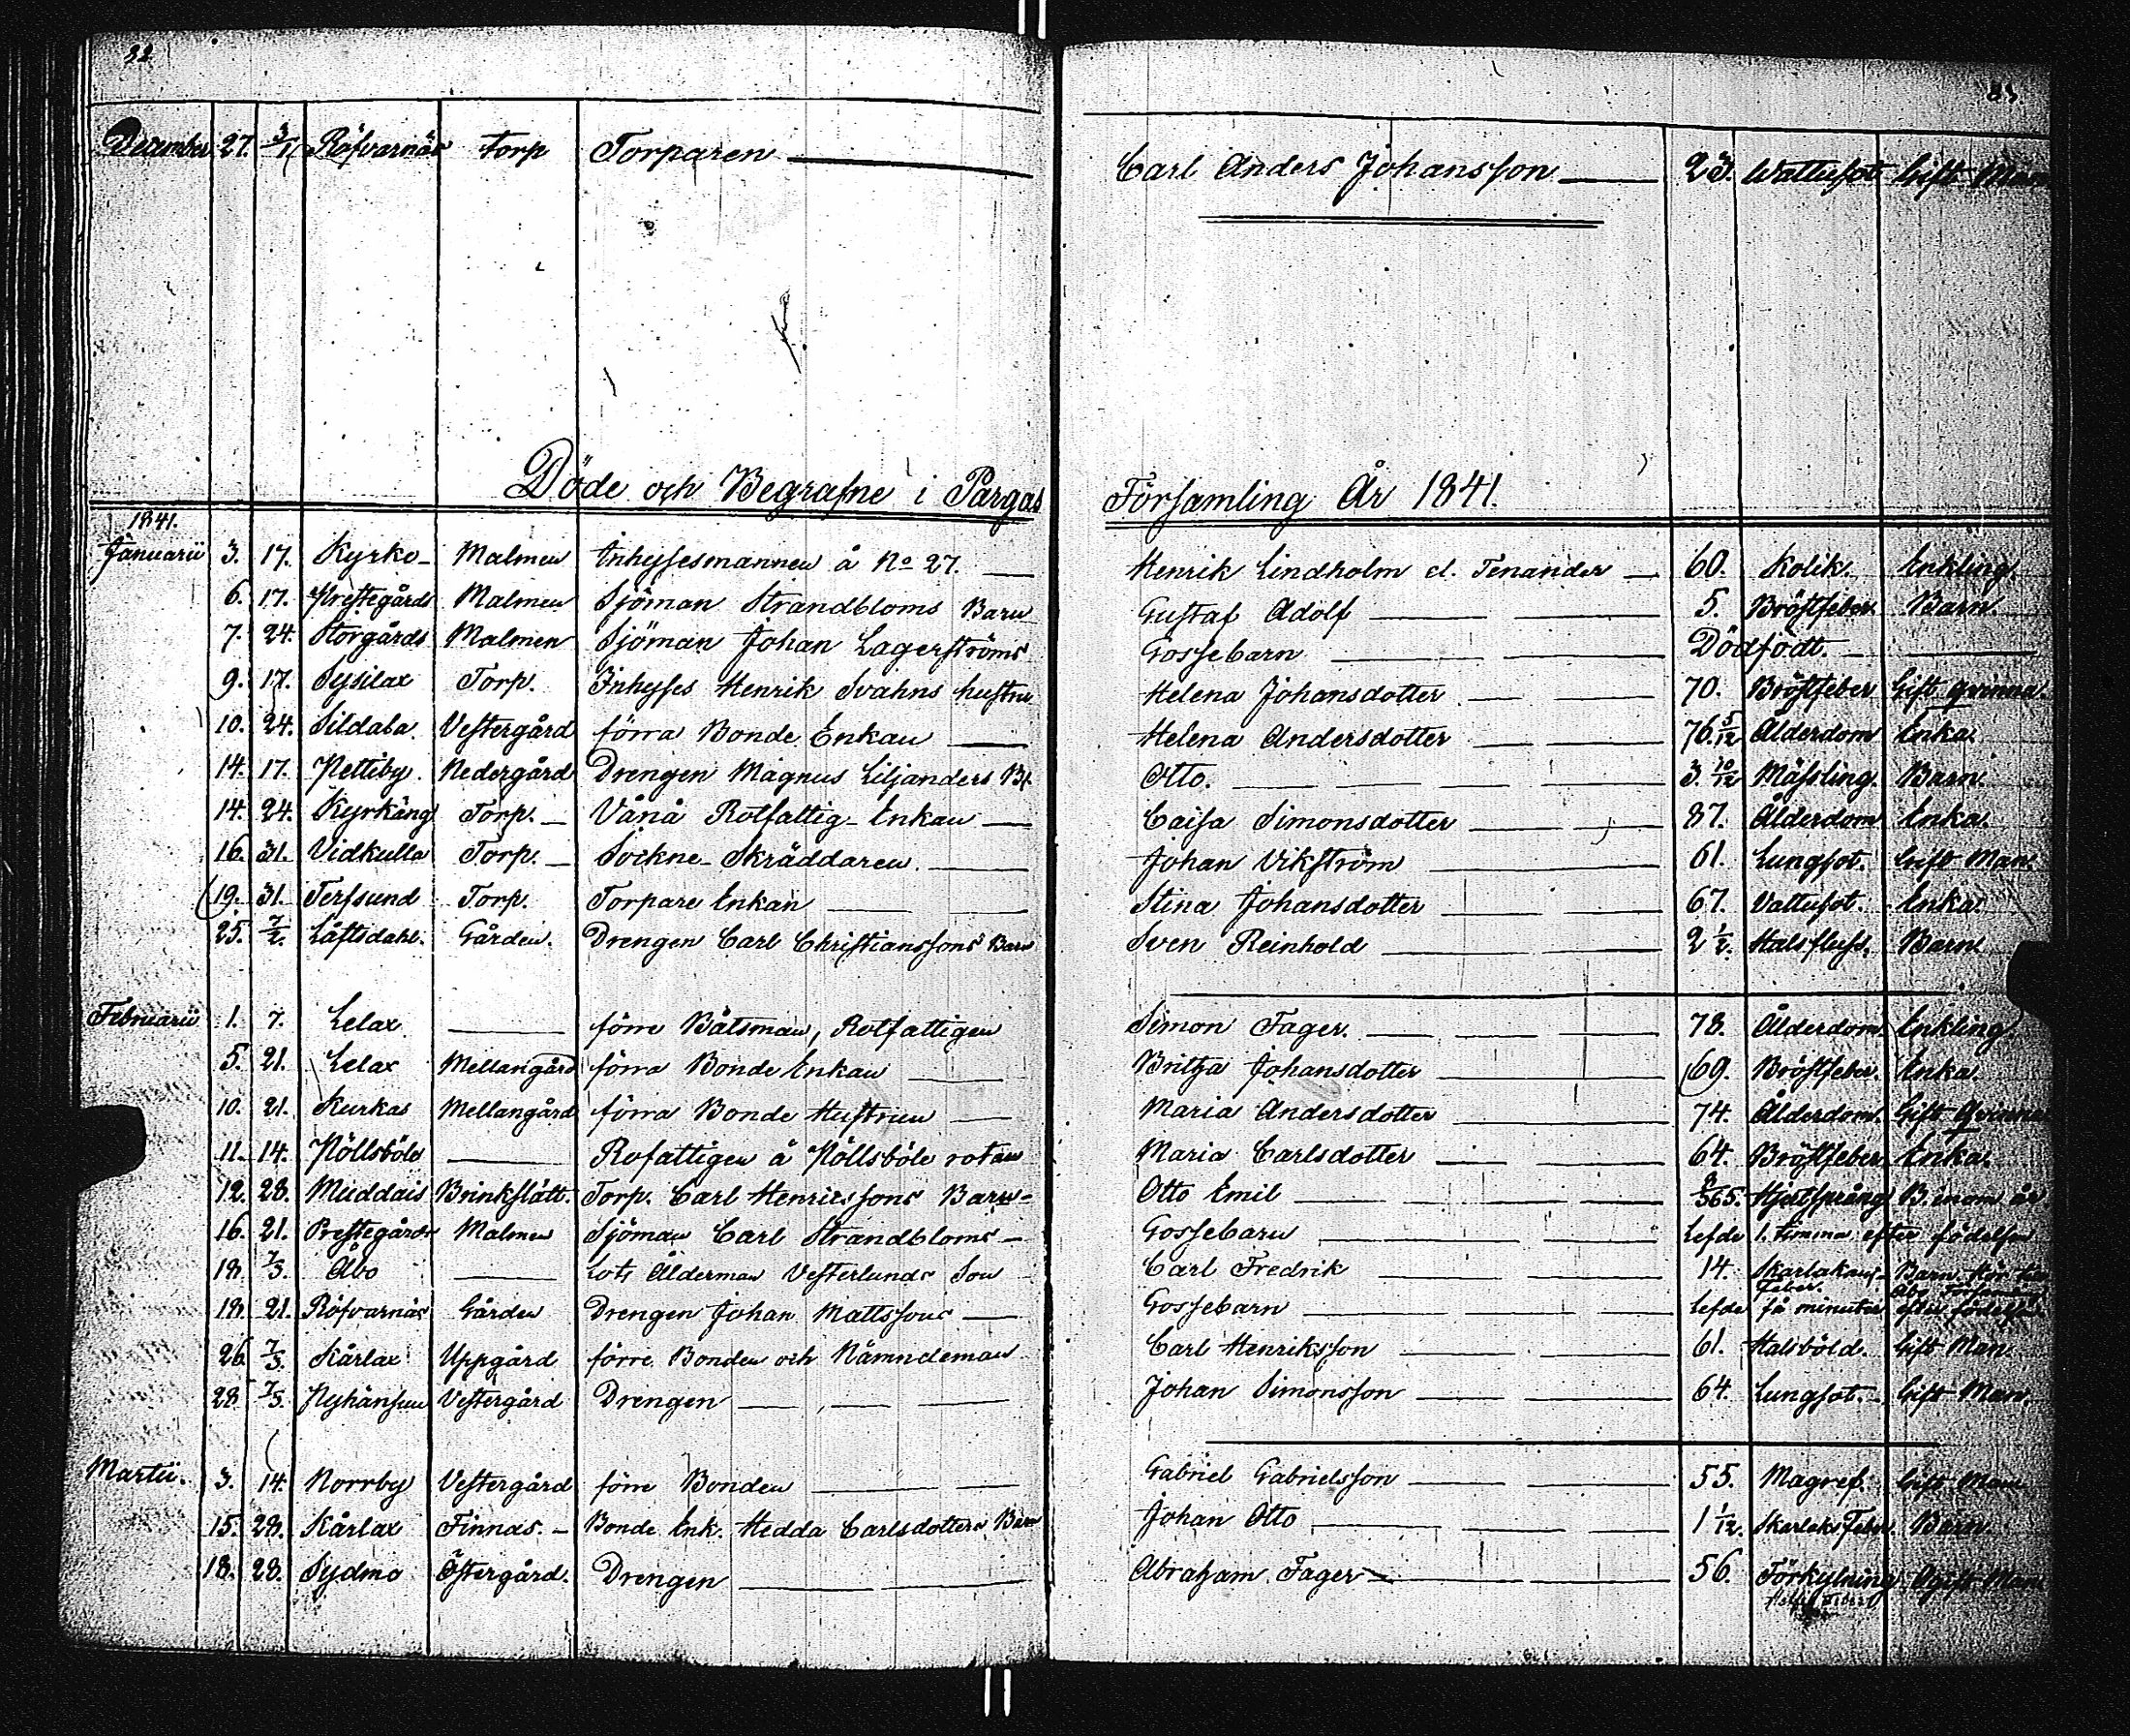 82
83.
December 27. 3/1 Röfvarnäs Torp Torparen Carl Anders Johansson 23. Wattusot Gift Man
Döde och Begrafne i Pargas Församling År 1841.
1841.
Januarii 3. 17. Kyrko- Malmen Inhyssesmannen å No 27. Henrik Lindholm el. Tenander 60. Kolik. Enkling.
6. 17. Prestegårds Malmen Sjöman Strandbloms Barn Gustaf Adolf 5. Bröstfeber Barn
7. 24. Storgårds Malmen Sjöman Johan Lagerströms Gossebarn Dödfödt.
9. 17. Sysilax Torp. Inhysses Henrik Svahns hustru Helena Johansdotter 70. Bröstfeber Gift qvinna.
10. 24. Sildala Vestergård förra Bonde Enkan Helena Andersdotter 76. 5/12 Ålderdom Enka.
14. 17. Pettiby. Nedergård Drengen Magnus Liljanders B. Otto. 3. 10/12 Mässling. Barn.
14. 24. Kyrkäng Torp. Vånå Rotfattig-Enkan Caisa Simonsdotter 87. Ålderdom Enka.
16. 31. Vidkulla Torp. Sockne-Skräddaren. Johan Vikström 61. Lungsot. Gift Man.
19. 31. Terfsund Torp. Torpare Enkan Stina Johansdotter 67. Vattusot. Enka.
25. 7/2. Läftsdahl. Gården. Drengen Carl Christianssons Barn Sven Reinhold 2 1/2. Halsfluss. Barn.
Februarii 1. 7. Lelax förre Båtsman, Rotfattigen Simon Fager. 78. Ålderdom. Enkling
5. 21. Lelax Mellangård förra Bonde Enkan Britza Johansdotter 69. Bröstfeber. Enka.
10. 21. Kurkas Mellangård förra Bonde Hustrun Maria Andersdotter 74. Ålderdom. Gift Qvinna
11. 14. Nöllsböle Rofattigen å Nöllsböle rotan Maria Carlsdotter 64. Bröstfeber Enka.
12. 28. Muddais Brinkslätt. Torp. Carl Henricssons Barn Otto Emil Hjertsprång B. inom år
16. 21. Prestegårds Malmen Sjöman Carl Strandbloms Gossebarn Lefde 1. timma efter födelsen
18. 7/3. Åbo Lots Ålderman Vesterlunds Son Carl Fredrik 14. Skarlakans- Feber. Barn
18. 21. Röfvarnäs Gården Drengen Johan Mattssons Gossebarn Lefde få minuter efter födelsen
26. 7/3. Kårlax Uppgård förre Bonden och Nämndeman Carl Henriksson 61. Halsböld. Gift Man
28. 7/3. Vestergård Drengen Johan Simonsson 64. Lungsot. Gift Man.
Martii. 3. 14. Norrby Vestergård förre Bonden Gabriel Gabrielsson 55. Magref. Gift Man
15. 28. Kårlax Finnas. Bonde Enk. Hedda Carlsdotters Barn Johan Otto 1 1/12. Skarlaks Feber Barn
18. 28. Sydmo Östergård. Drengen Abraham Fager 56. Förkylning Ogift Man